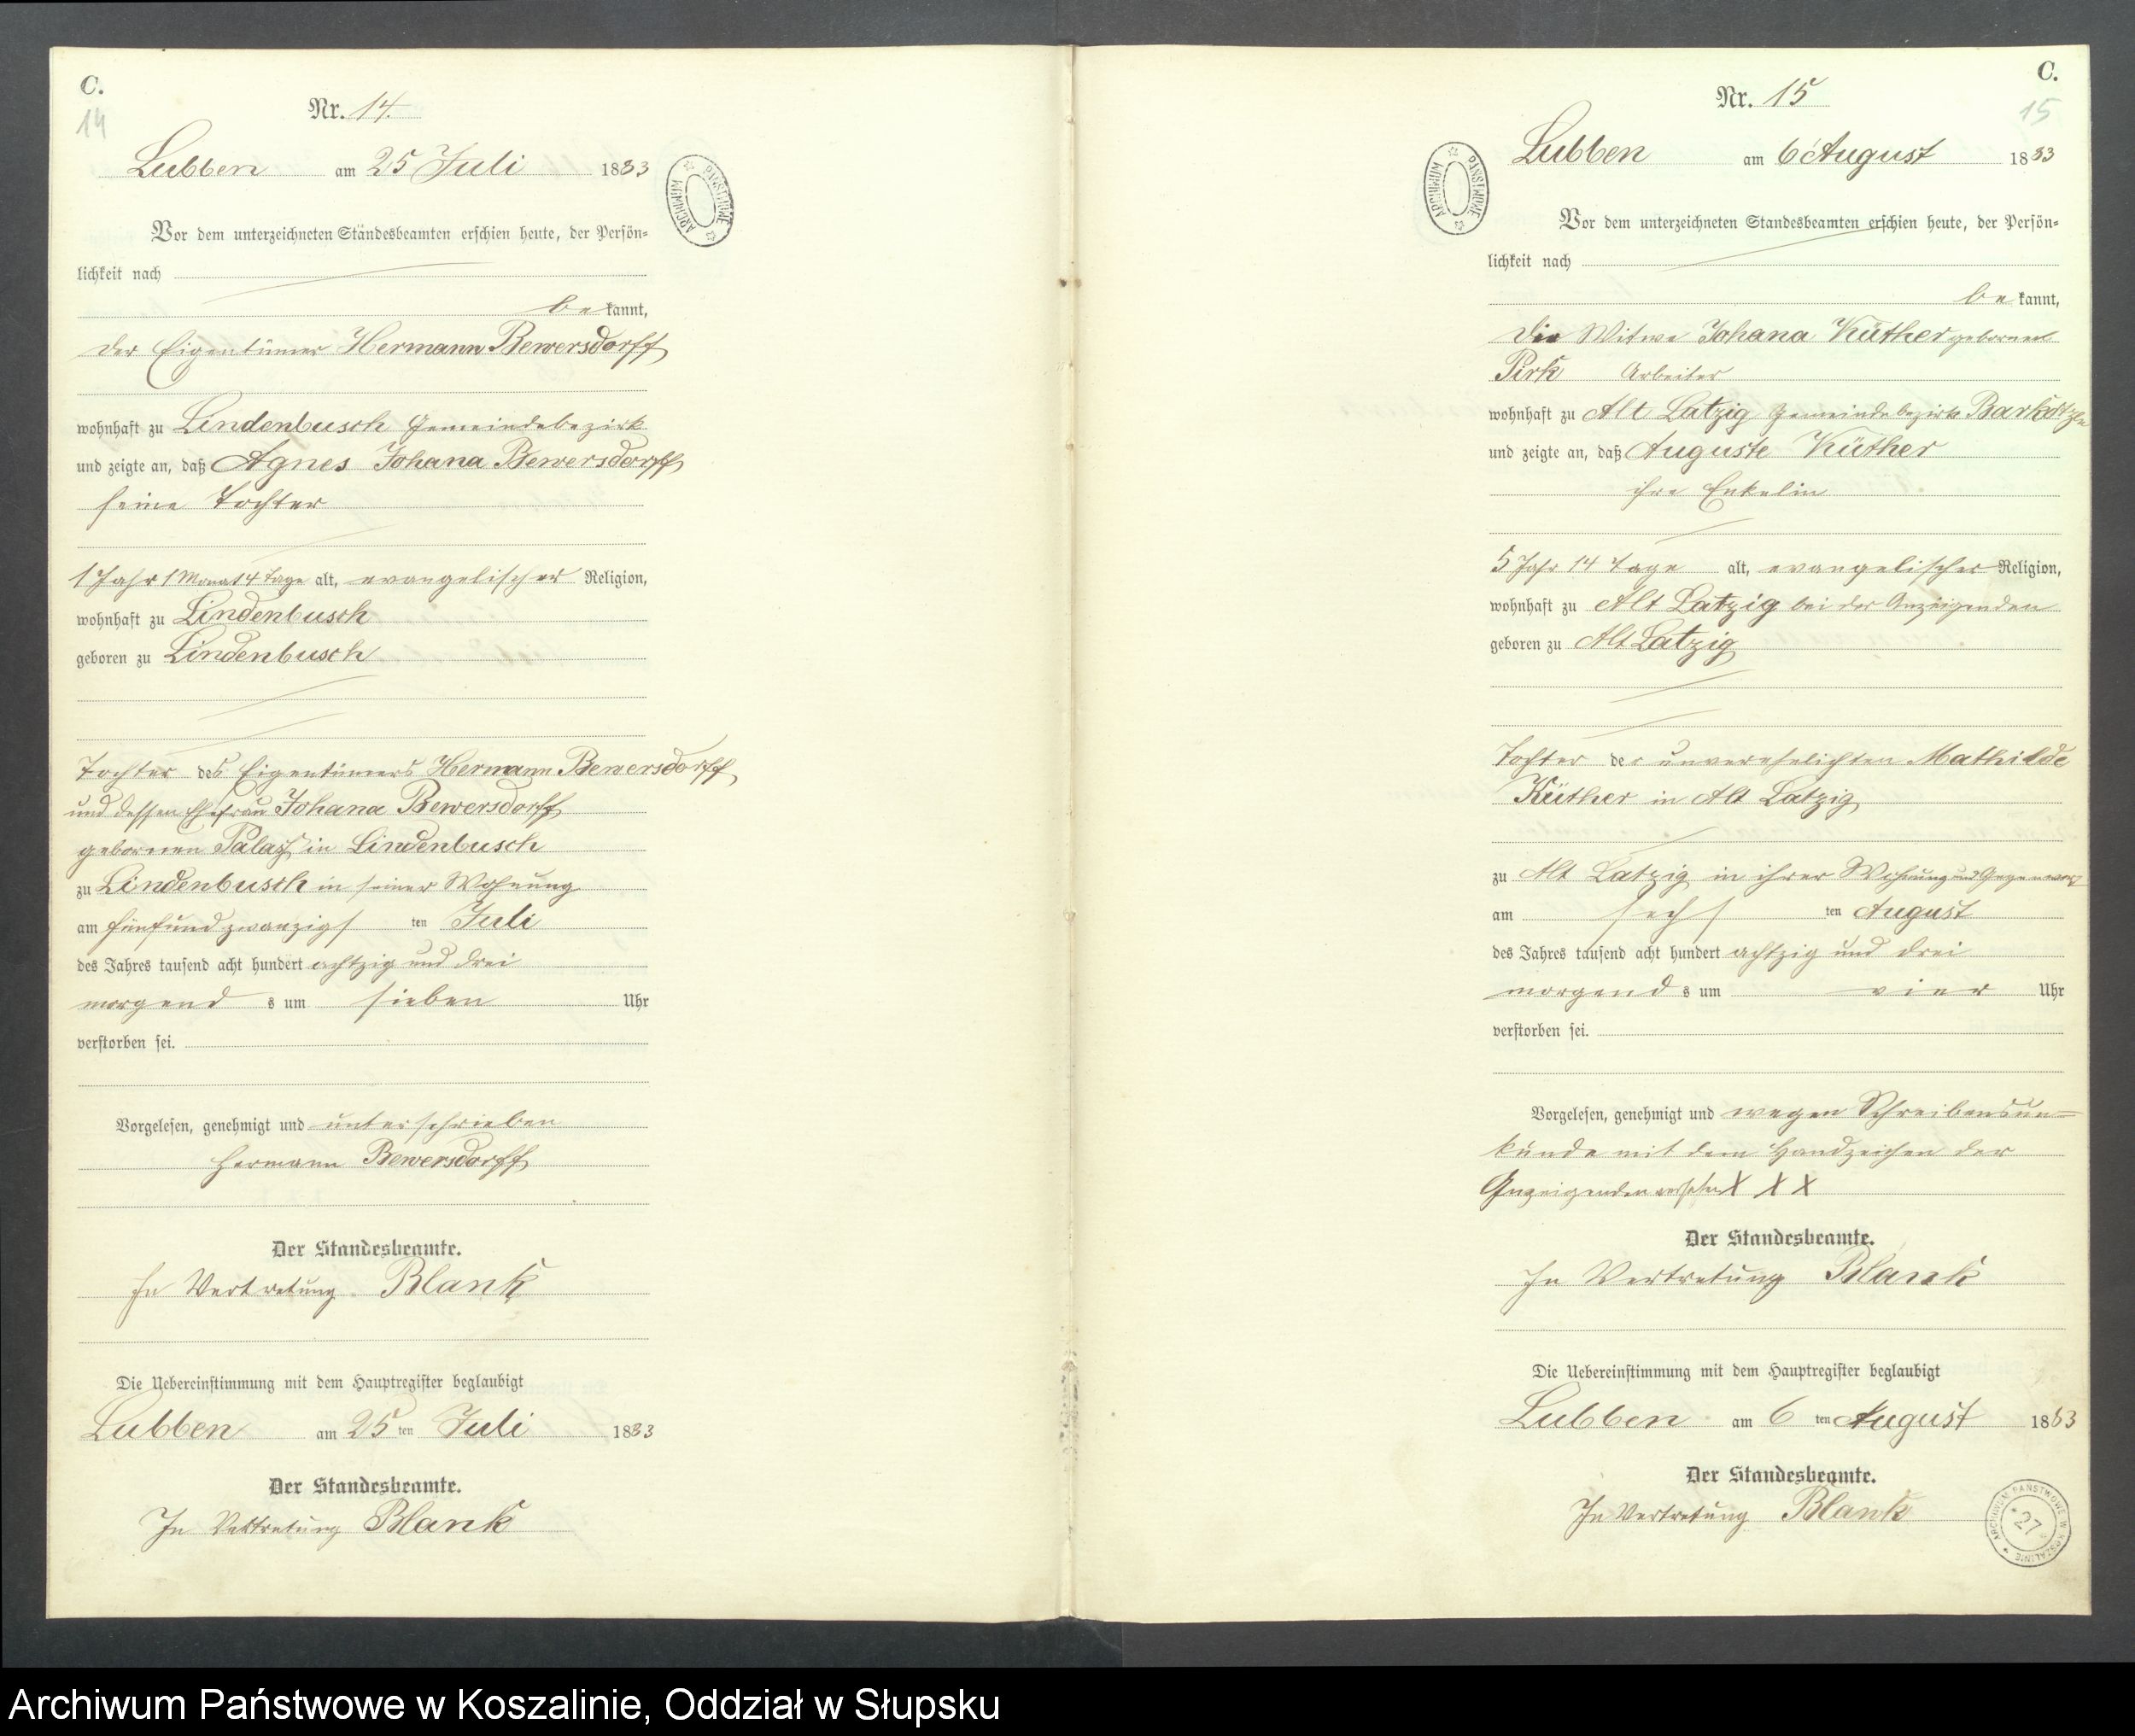 C.
14
Nr. 14.
Lubben am 25 Juli 1883
Vor dem unterzeichneten Standesbeamten erschien heute, der Persön-
lichkeit nach
be kannt,
der Eigentümer Hermann Bewersdorff
wohnhaft zu Lindenbusch Gemeindebezirk
und zeigte an, daß Agnes Johana Bewersdorff
seine Tochter
1 Jahr 1 Monat 4 Tage alt, evangelischer Religion,
wohnhaft zu Lindenbusch
geboren zu Lindenbusch
Tochter des Eigentümers Hermann Bewersdorff
und dessen Ehefrau Johana Bewersdorff
gebornen in Lindenbusch
zu Lindenbusch in seiner Wohnung
am fünfundzwanzigs ten Juli
des Jahres tausend acht hundert achtzig und drei
morgend s um sieben Uhr
verstorben sei.
Vorgelesen, genehmigt und unterschrieben
Hermann Bewersdorff
Der Standesbeamte.
In Vertretung Blank
Die Uebereinstimmung mit dem Hauptregister beglaubigt
Lubben am 25 ten Juli 1883
Der Standesbeamte.
In Vertretung Blank
ARCHIWUM PAŃSTWOWE
C.
15
Nr. 15
Lubben am 6 August 1883
ARCHIWUM PAŃSTWOWE
Vor dem unterzeichneten Standesbeamten erschien heute, der Persön-
lichkeit nach
be kannt,
die Witwe Johana Küther gebornen
Pirk Arbeiter
wohnhaft zu Alt Latzig Gemeindebezirk
und zeigte an, daß Auguste Küther
ihre Enkelin
5 Jahr 14 Tage alt, evangelischer Religion,
wohnhaft zu Alt Latzig bei der Anzeigenden
geboren zu Alt Latzig
Tochter der unverehelichten Mathilde
Küther in Alt Latzig
zu Alt Latzig in ihrer Wohnung und Gegenwart
am sechs ten August
des Jahres tausend acht hundert achtzig und drei
morgend s um vier Uhr
verstorben sei.
Vorgelesen, genehmigt und wegen Schreibensun=
kunde mit dem Handzeichen der
Anzeigenden versehen X X X
Der Standesbeamte.
In Vertretung Blank
Die Uebereinstimmung mit dem Hauptregister beglaubigt
Lubben am 6 ten August 1883
Der Standesbeamte.
In Vertretung Blank
ARCHIWUM PAŃSTWOWE W KOSZALINIE
27
Archiwum Państwowe w Koszalinie, Oddział w Słupsku